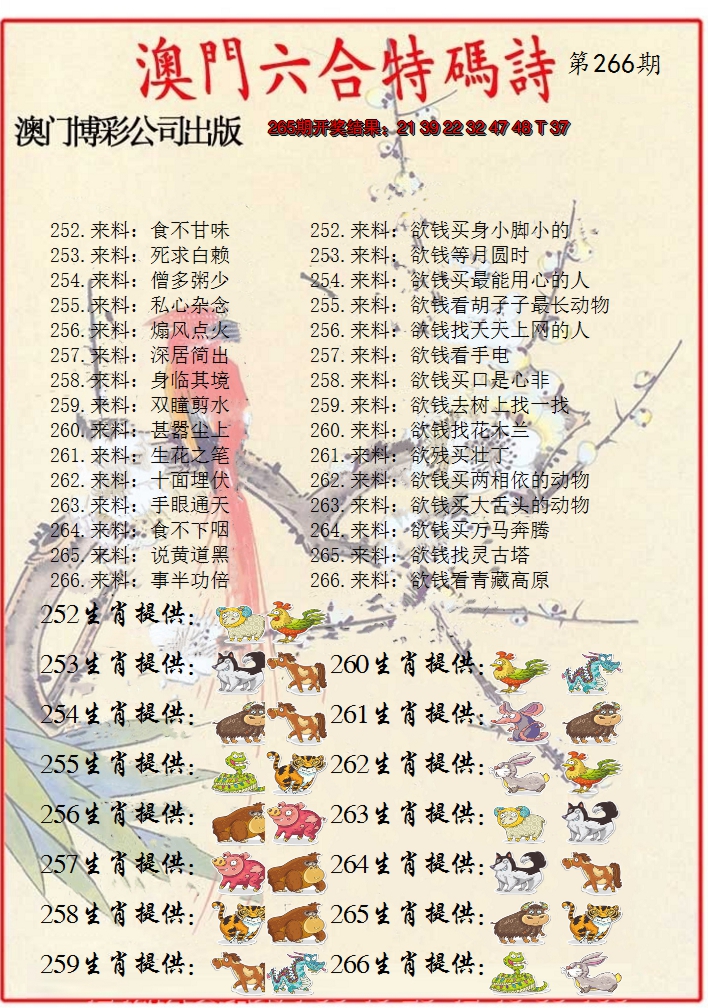 澳門六合特碼詩 第266期
澳门博彩公司出版 265期开奖结果：21 39 22 32 47 48 T 37
252.来料：食不甘味 252.来料：欲钱买身小脚小的
253.来料：死求白赖 253.来料：欲钱等月圆时
254.来料：僧多粥少 254.来料：欲钱买最能用心的人
255.来料：私心杂念 255.来料：欲钱看胡子子最长动物
256.来料：煽风点火 256.来料：欲钱找天天上网的人
257.来料：深居简出 257.来料：欲钱看手电
258.来料：身临其境 258.来料：欲钱买口是心非
259.来料：双瞳剪水 259.来料：欲钱去树上找一找
260.来料：甚嚣尘上 260.来料：欲钱找花木兰
261.来料：生花之笔 261.来料：欲残买壮丁
262.来料：十面埋伏 262.来料：欲钱买两相依的动物
263.来料：手眼通天 263.来料：欲钱买大舌头的动物
264.来料：食不下咽 264.来料：欲钱买万马奔腾
265.来料：说黄道黑 265.来料：欲钱找灵古塔
266.来料：事半功倍 266.来料：欲钱看青藏高原
252生肖提供：
253生肖提供： 260生肖提供：
254生肖提供： 261生肖提供：
255生肖提供： 262生肖提供：
256生肖提供： 263生肖提供：
257生肖提供： 264生肖提供：
258生肖提供： 265生肖提供：
259生肖提供： 266生肖提供：